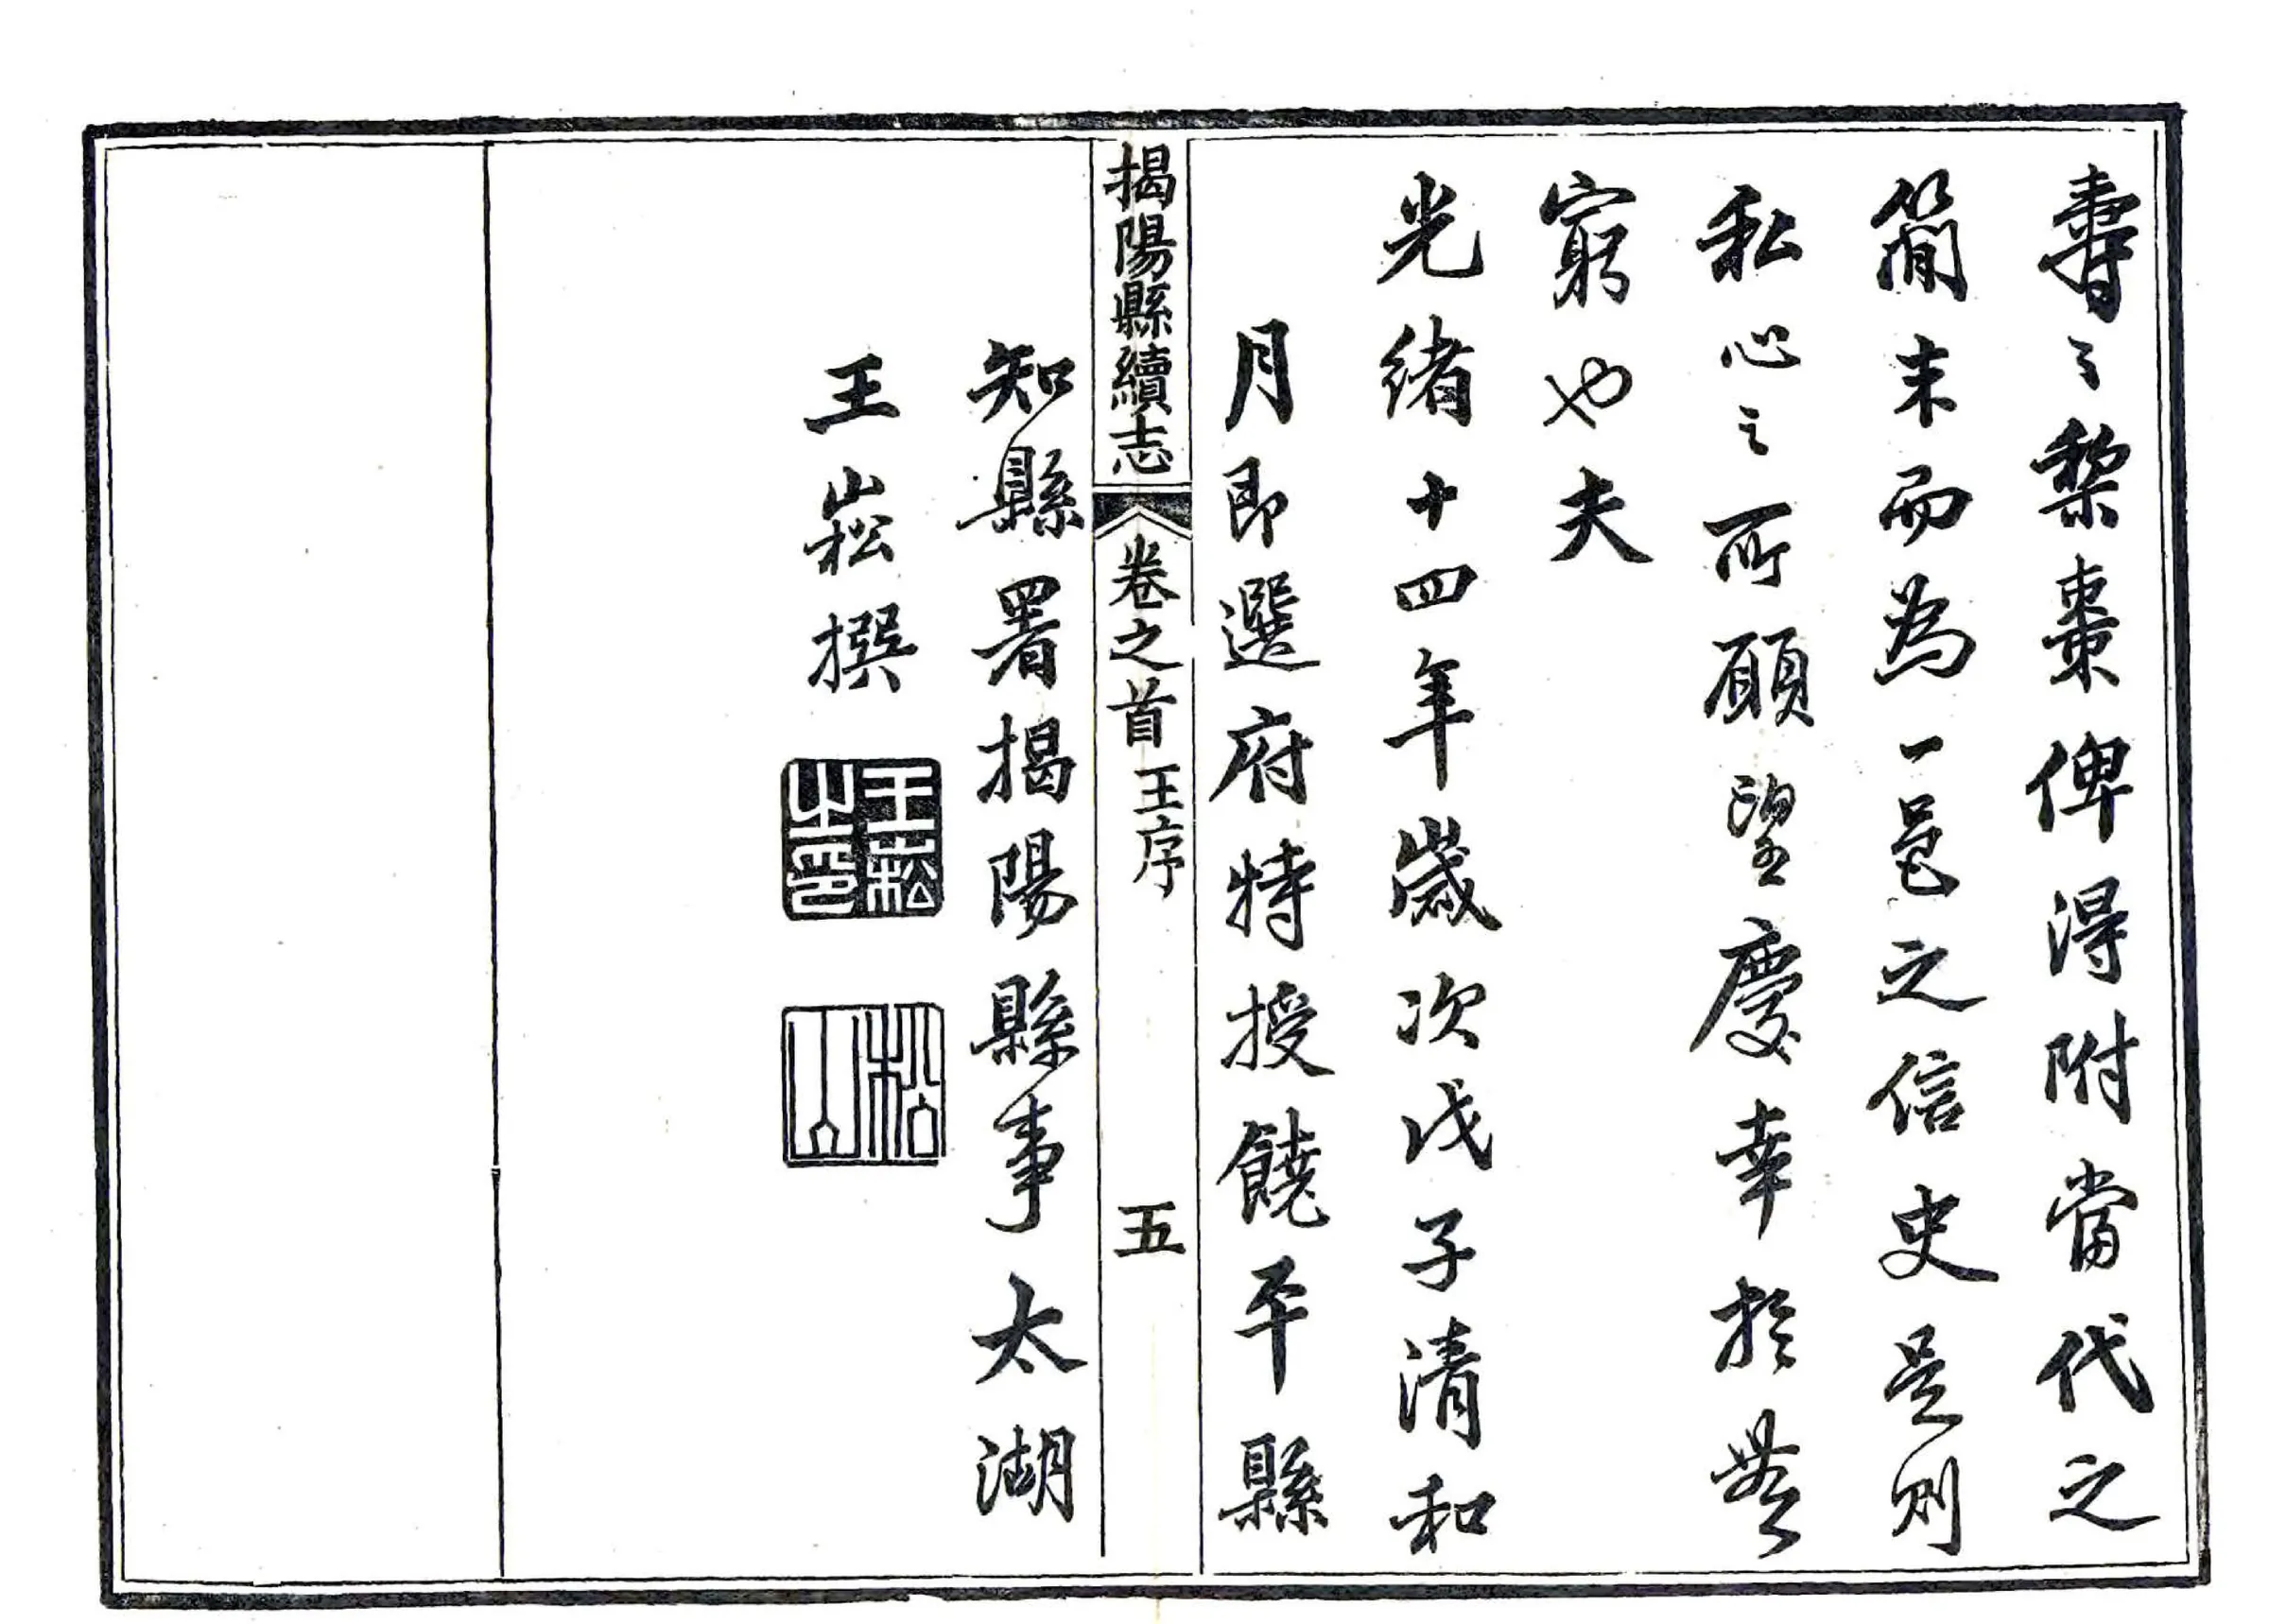 壽之棃棗俾得附當代之
簡末而為一邑之信史是則
私心之所願望慶幸於無
窮也夫
光緒十四年歲次戊子清和
月即選府特授饒平縣
揭陽縣續志 卷之首 王序 五
知縣署揭陽縣事太湖
王崧撰
王崧之印
松公